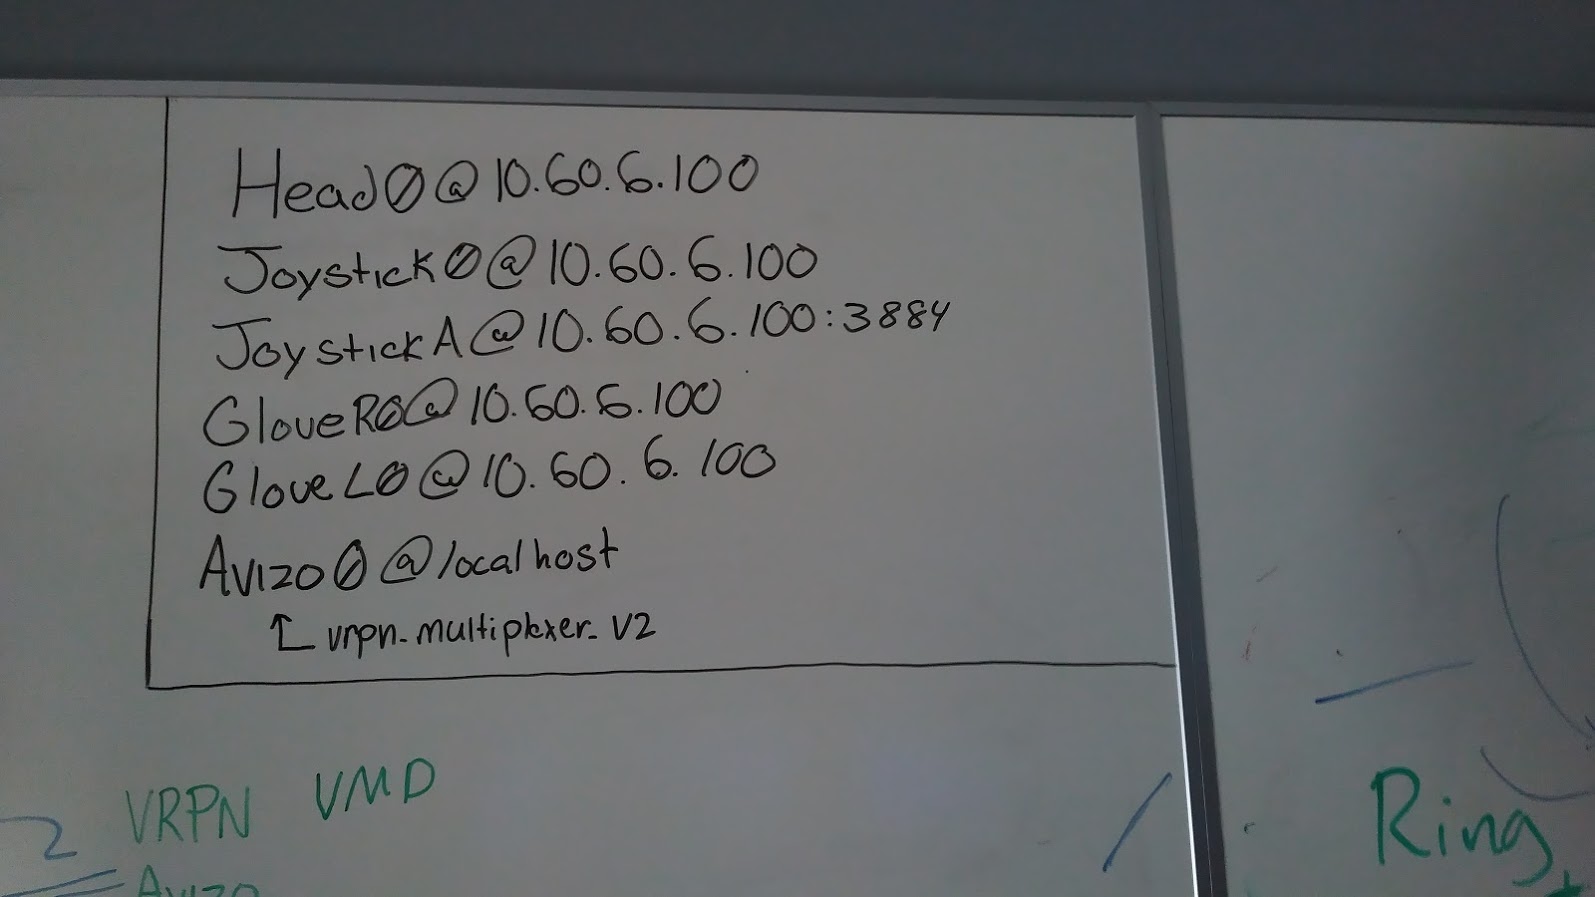 Head0@10.60.6.100
Joystick0@10.60.6.100
JoystickA@10.60.6.100:3884
GloveR0@10.60.6.100
GloveL0@10.60.6.100
Avizo0@localhost
vrpn_multiplexer_v2
VRPN VMD
2
Avizo
Ring